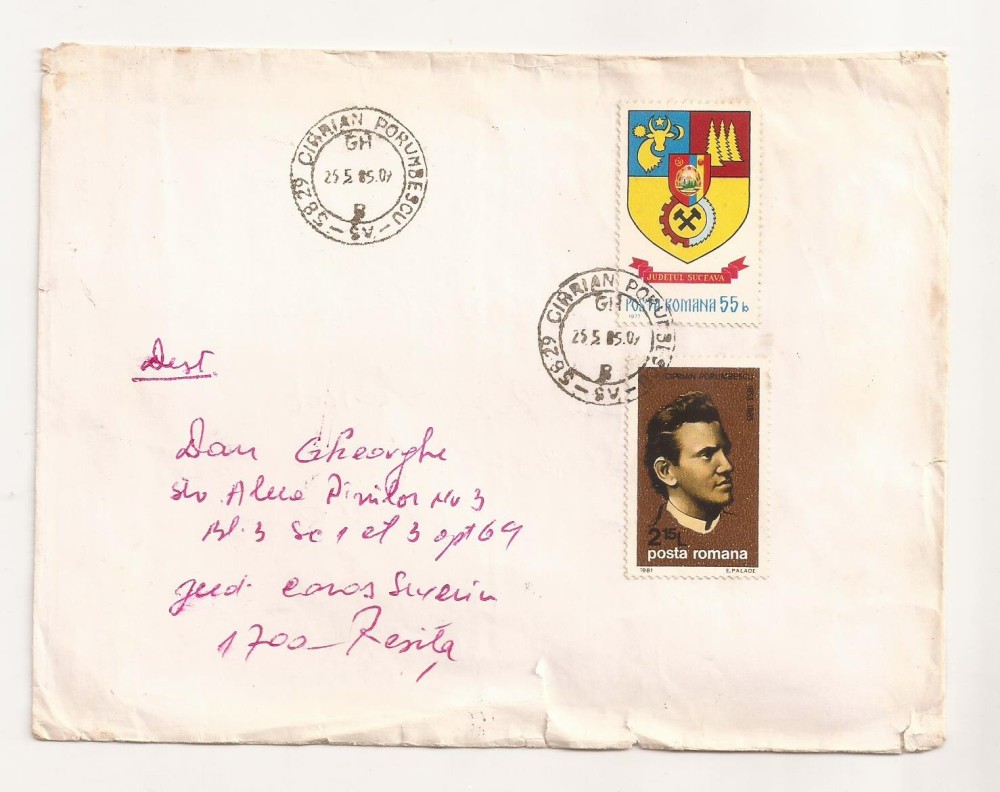 5829 CIPRIAN PORUMBESCU - AS -
GH
25.5.85.07
B
JUDEȚUL SUCEAVA
POSTA ROMANA 55b
1977
5829 CIPRIAN PORUMBESCU - AS -
GH
25.5.85.07
B
CIPRIAN PORUMBESCU
1853 1883
2 15 L
posta romana
1981 E. PALADE
Dest.
Dan Gheorghe
str Aleea Pinilor Nr 3
Bl. 3 Sc 1 et 3 apt 64
jud. Caras Severin
1700 - Resița